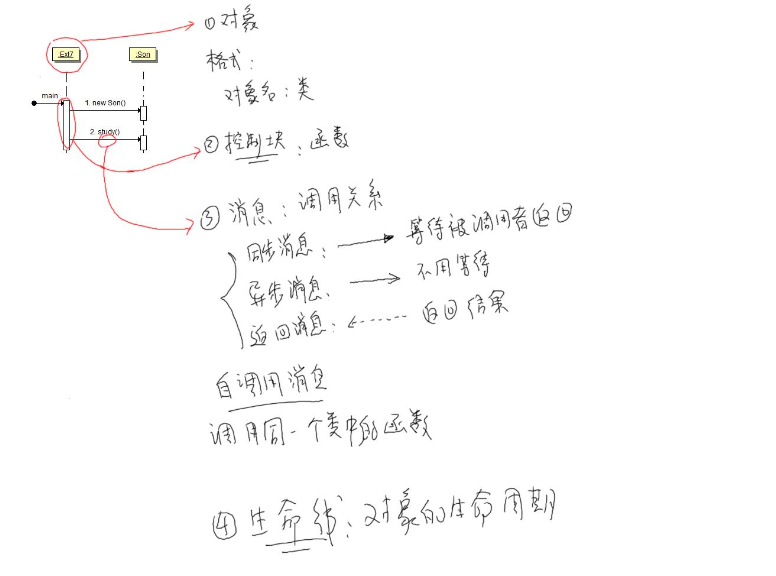 :Exl7
:Son
main
1. new Son()
2. study()
①对象
格式:
对象名:类
②控制块:函数
③消息:调用关系
同步消息: 等待被调用者返回
异步消息. 不用等待
返回消息: 返回结果
自调用消息
调用同一个类中的函数
④生命线:对象的生命周期